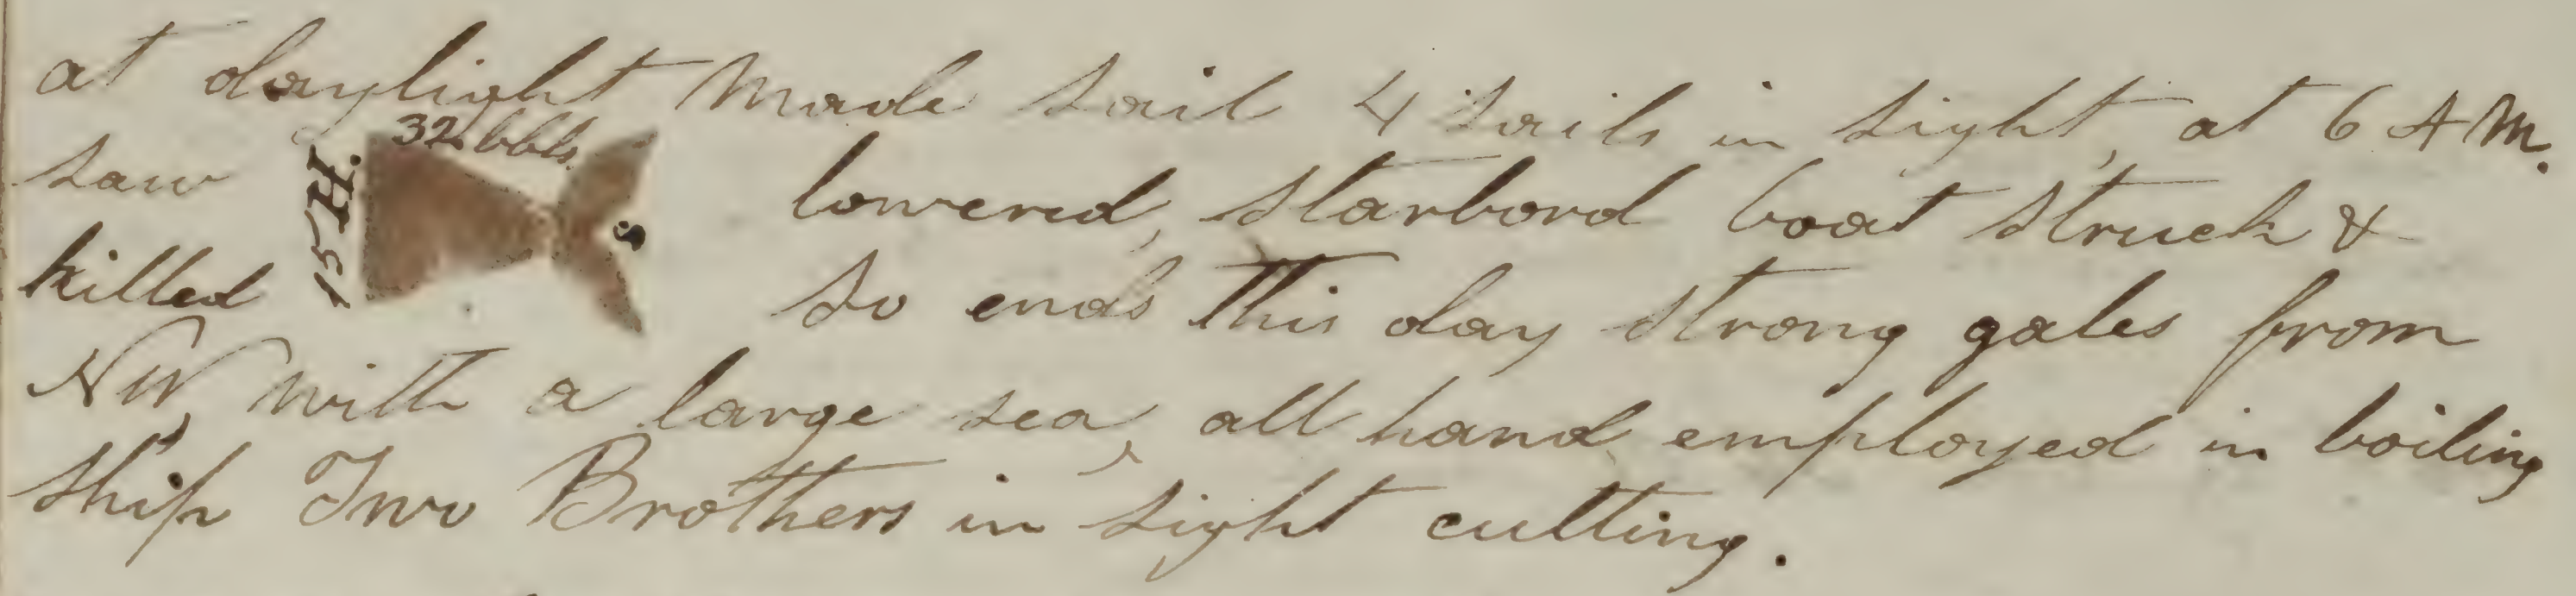 at daylight made sail 4 sails in sight, at 6 AM.
32 bbls
saw lowered, starbord boat struck &
15 H.
S
killed so ends this day strong gales from
NW, with a large sea, all hand employed in boiling
ship Two Brothers in sight cutting.